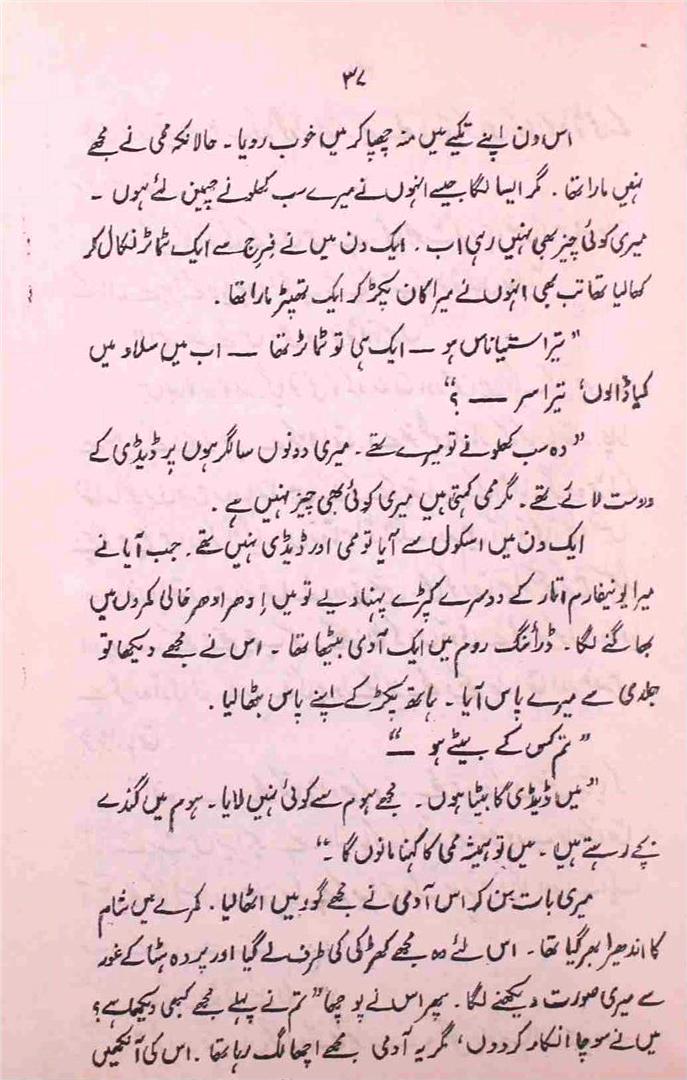 ۳۷
اس دن اپنے تکیے میں منہ چھپا کر میں خوب رویا۔ حالانکہ ممی نے مجھے
نہیں مارا تھا۔ مگر ایسا لگا جیسے انہوں نے میرے سب کھلونے چھین لئے ہوں۔
میری کوئی چیز بھی نہیں رہی اب۔ ایک دن میں نے فرج سے ایک ٹماٹر نکال کر
کھالیا تھا تب بھی انہوں نے میرا کان پکڑ کر ایک تھپڑ مارا تھا۔
"تیرا ستیاناس ہو — ایک ہی تو ٹماٹر تھا — اب میں سلاد میں
کیا ڈالوں، تیرا سر — ؟"
"وہ سب کھلونے تو میرے تھے۔ میری دونوں سالگرہوں پر ڈیڈی کے
دوست لائے تھے۔ مگر ممی کہتی ہیں میری کوئی بھی چیز نہیں ہے۔
ایک دن میں اسکول سے آیا تو ممی اور ڈیڈی نہیں تھے۔ جب آیا نے
میرا یونیفارم اتار کے دوسرے کپڑے پہنا دیے تو میں اِدھر اُدھر خالی کمروں میں
بھاگنے لگا۔ ڈرائنگ روم میں ایک آدمی بیٹھا تھا۔ اس نے مجھے دیکھا تو
جلدی سے میرے پاس آیا۔ ہاتھ پکڑ کے اپنے پاس بٹھالیا۔
"تم کس کے بیٹے ہو —"
"میں ڈیڈی کا بیٹا ہوں۔ مجھے ہوم سے کوئی نہیں لایا۔ ہوم میں گندے
بچے رہتے ہیں۔ میں تو ہمیشہ ممی کا کہنا مانوں گا۔"
میری بات سن کر اس آدمی نے مجھے گود میں اٹھالیا۔ کمرے میں شام
کا اندھیرا بھر گیا تھا۔ اس لئے وہ مجھے کھڑکی کی طرف لے گیا اور پردہ ہٹا کے غور
سے میری صورت دیکھنے لگا۔ پھر اس نے پوچھا "تم نے پہلے مجھے کبھی دیکھا ہے؟
میں نے سوچا انکار کردوں، مگر یہ آدمی مجھے اچھا لگ رہا تھا۔ اس کی آنکھیں